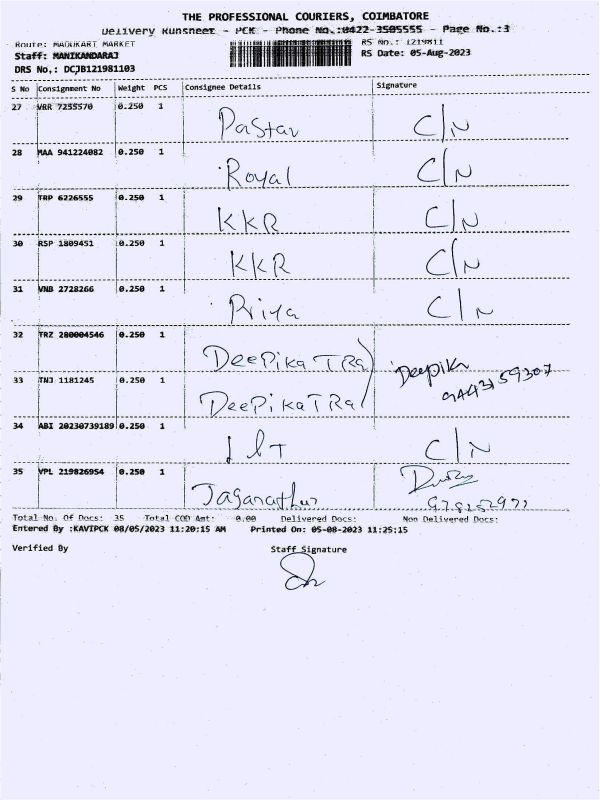 THE PROFESSIONAL COURIERS, COIMBATORE
Delivery Runsheet - PCK - Phone No.:0422-3505555 - Page No.:3
Route: MADUKART MARKET RS No.: 1219811
Staff: MANIKANDARAJ RS Date: 05-Aug-2023
DRS No.: DCJB121981103
S No Consignment No Weight PCS Consignee Details Signature
27 VRR 7255570 0.250 1 Pastav C/N
28 MAA 941224082 0.250 1 Royal C/N
29 TRP 6226555 0.250 1 KKR C/N
30 RSP 1809451 0.250 1 KKR C/N
31 VNB 2728266 0.250 1 Priya C/N
32 TRZ 280004546 0.250 1 DeePika TRa Deepika
33 TNJ 1181245 0.250 1 DeePika TRa 9443159307
34 ABI 20230739189 0.250 1 C/N
35 VPL 219826954 0.250 1
Total No. Of Docs: 35 Total COD Amt: 0.00 Delivered Docs: Non Delivered Docs:
Entered By :KAVIPCK 08/05/2023 11:20:15 AM Printed On: 05-08-2023 11:25:15
Verified By Staff Signature